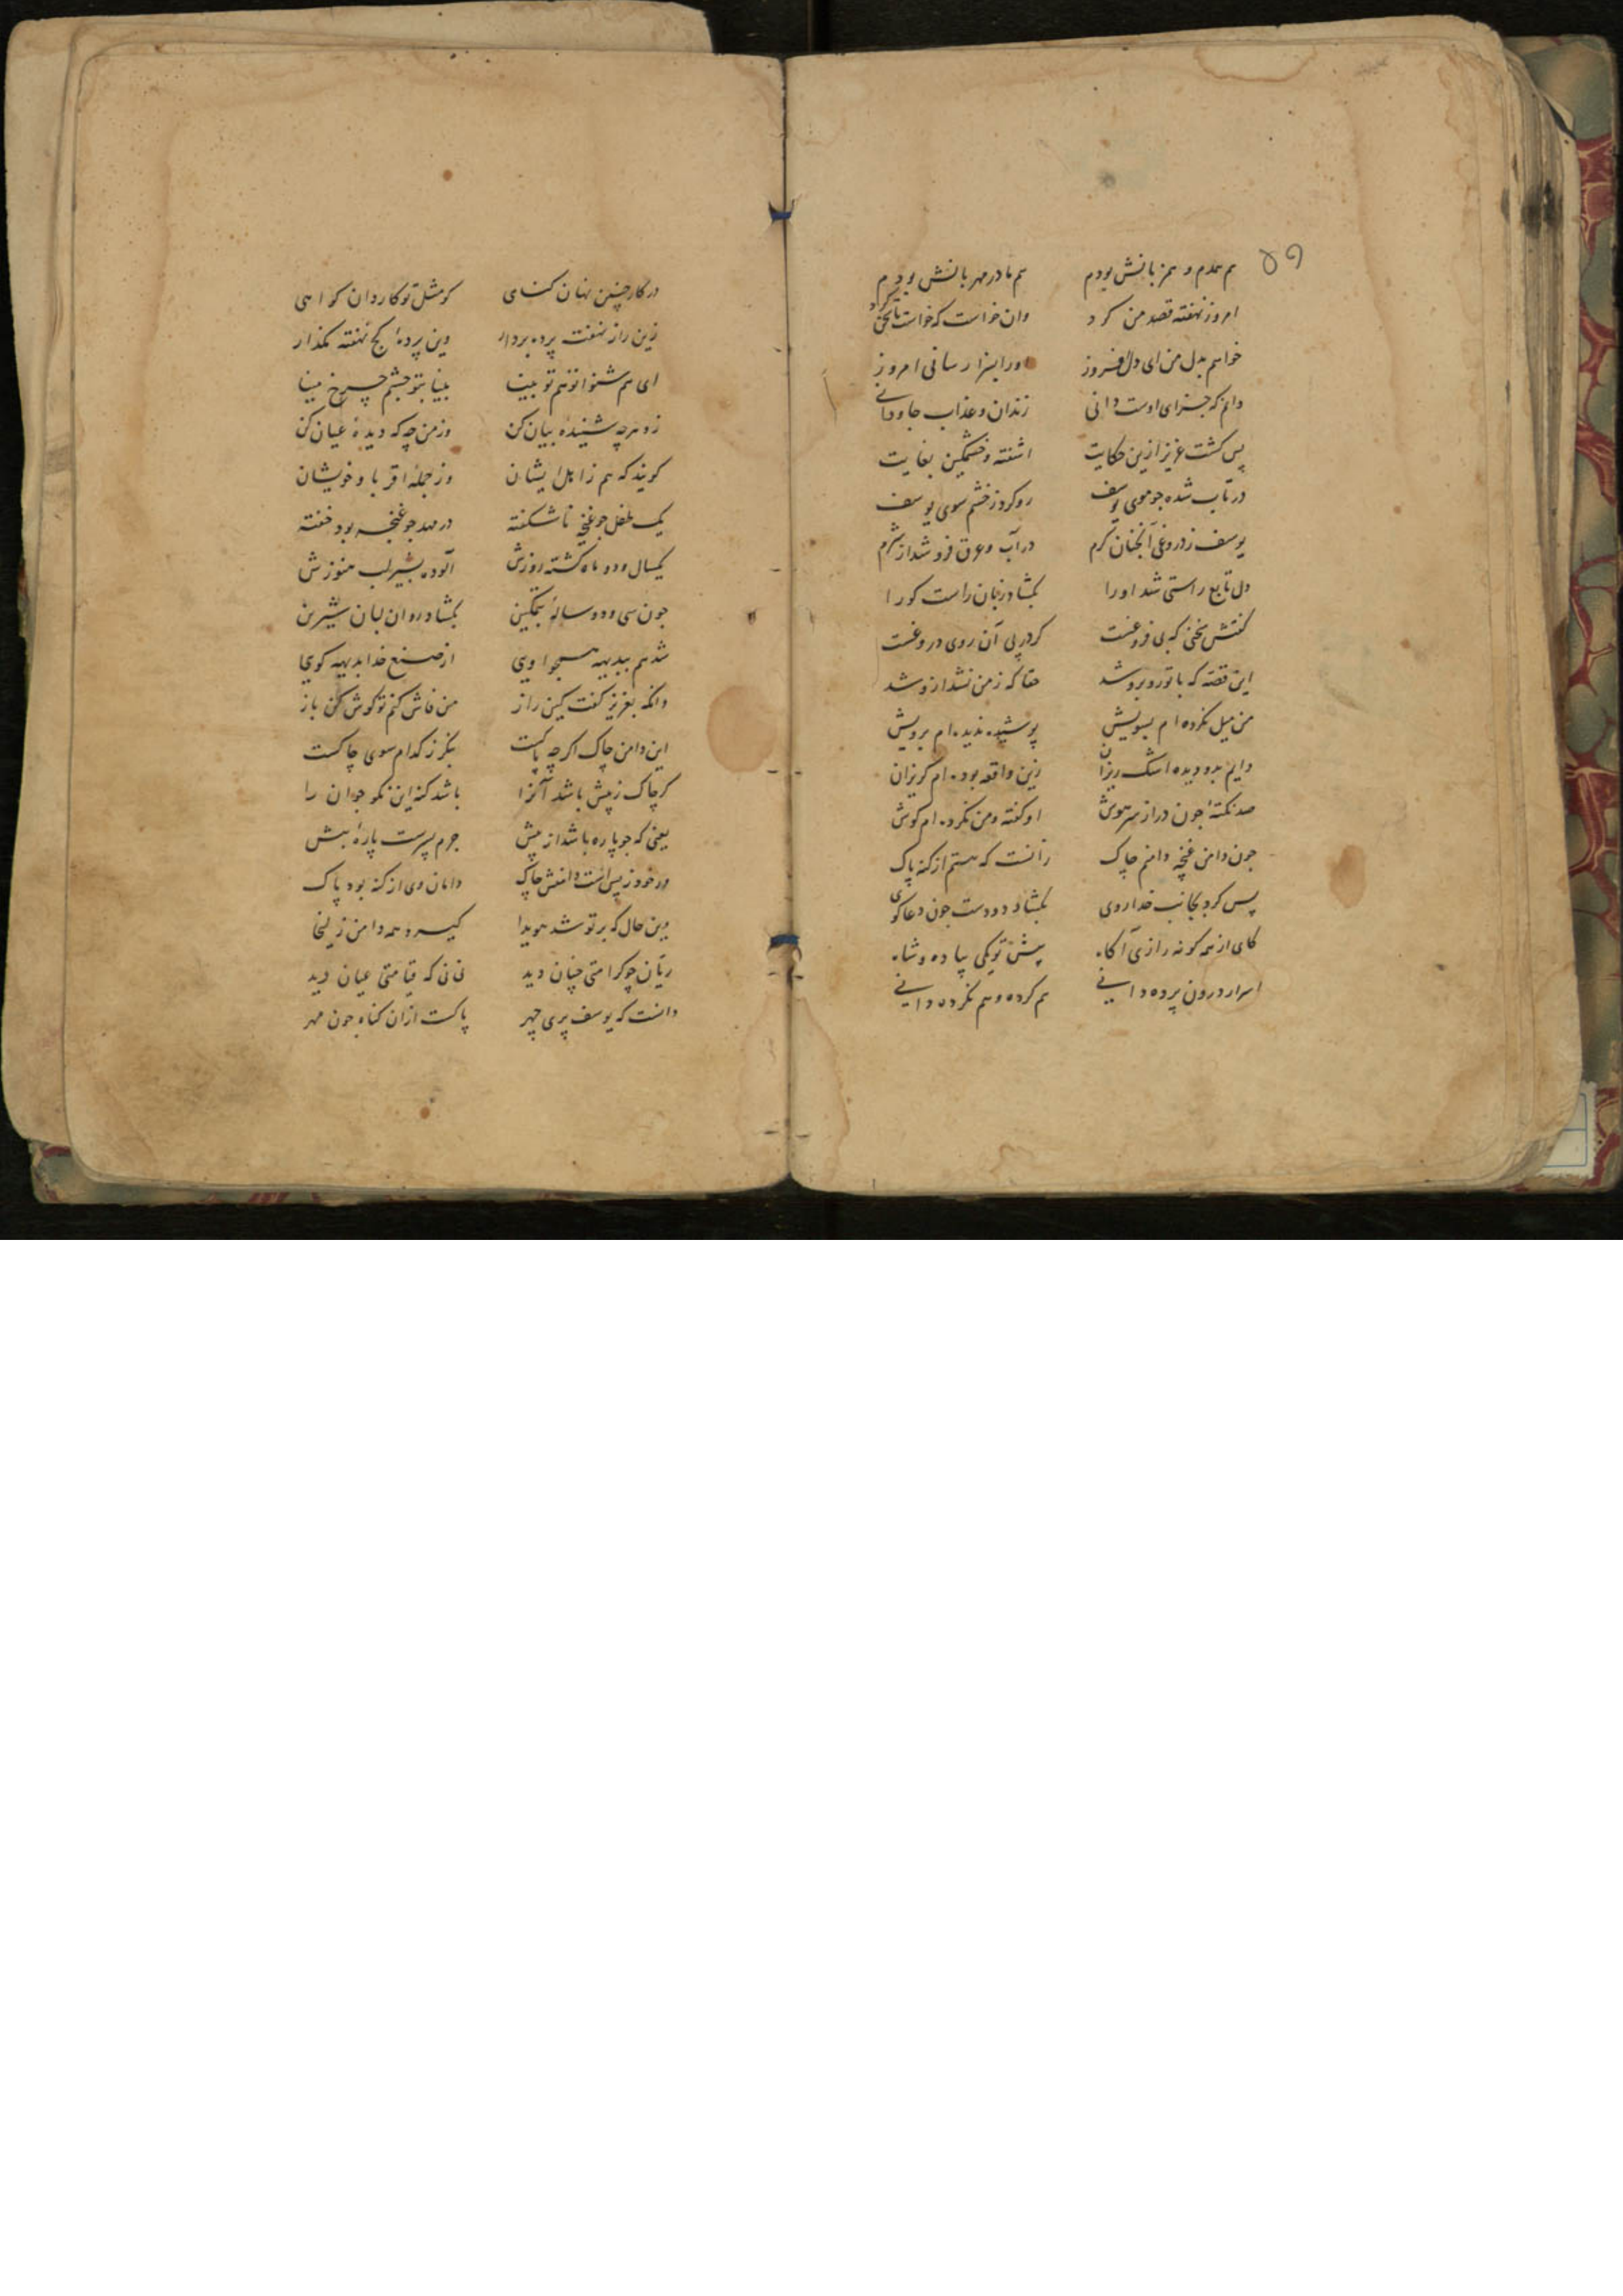 ۵۹
هم همدم و همزبانش بودم هم مادر مهربانش بودم
امروز نهفته قصد من کرد وان خواست که خواست تلخی کرد
خواهم بدل من ای دل افروز اورا بسزا رسانی امروز
دانم که جزای اوست دانی زندان و عذاب جاودانی
پس کشت عزیز ازین حکایت اشفته و خشمکین بغایت
در تاب شده جو موی یوسف رو کرد ز خشم سوی یوسف
یوسف ز دروغی آنجنان کرم در آب و عرق فرو شد از شرم
دل تابع راستی شد اورا بکشاد زبان راست کو را
کفتش سخنی که بی فروغست کردر پی آن روی دروغست
این قصه که با تو روبرو شد حقا که ز من نشد ازو شد
من میل نکرده ام بسویش پوشیده ندیده ام برویش
دایم بدو دیده اشک ریزان زین واقعه بوده ام کریزان
صد نکته جون دراز سر هوش او کفته و من نکرده ام کوش
جون دامن غنچه دامنم جاک زانست که هستم از کنه پاک
پس کرد بجانب خدا روی بکشاد دو دست جون دعا کوی
کای از همه کونه رازی آکاه پیش تو یکی پیاده و شاه
اسرار درون پرده دانی هم کرده و هم نکرده دانی
در کار چنین نهان کنای کو مثل تو کاردان کواهی
زین راز نهفت پرده بردار وین پرده کج نهفته مکذار
ای هم شنوا تو هم تو بینا بینا بتو جشم چرخ مینا
زو هرچه شنیده بیان کن وز من چه که دیده عیان کن
کویند که هم ز اهل ایشان وز جمله اقربا و خویشان
یک طفل جو غنچه ناشکفته در مهد جو غنجه بود خفته
یکسال و دو ماه کشته روزش آلوده بشیر لب هنوزش
جون سی و دو ساله بتمکین بکشاد روان لبان شیرین
شد هم ببدیهه مسیحا وی از صنع خدا بدیهه کوی
وانکه بعزیز کفت کین راز من فاش کنم تو کوش کن باز
این دامن چاک اکرچه پاکست بنکر ز کدام سوی چاکست
کر چاک ز پیش باشد آنرا باشد کنه این نکو جوان را
یعنی که جو پاره باشد از پیش جرم پسرست پاره بیش
ور خود ز پس است دامنش چاک دامان وی از کنه بود پاک
وین حال که بر تو شد هویدا کیرد همه دامن زلیخا
ریان چو کرامتی چنان دید نی نی که قیامتی عیان دید
دانست که یوسف پری چهر پاکست ازان کناه جون مهر